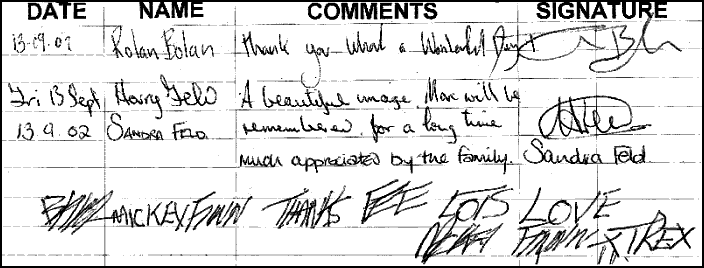 DATE NAME COMMENTS SIGNATURE
13-09-02 Rolan Bolan Thank you What a Wonderful
Fri 13 Sept Harry Feld A beautiful image. Marc will be
13.9.02 SANDRA FELD remembered for a long time
much appreciated by the family. Sandra Feld
MICKEY FINN THANKS LOTS LOVE
FINN T.REX